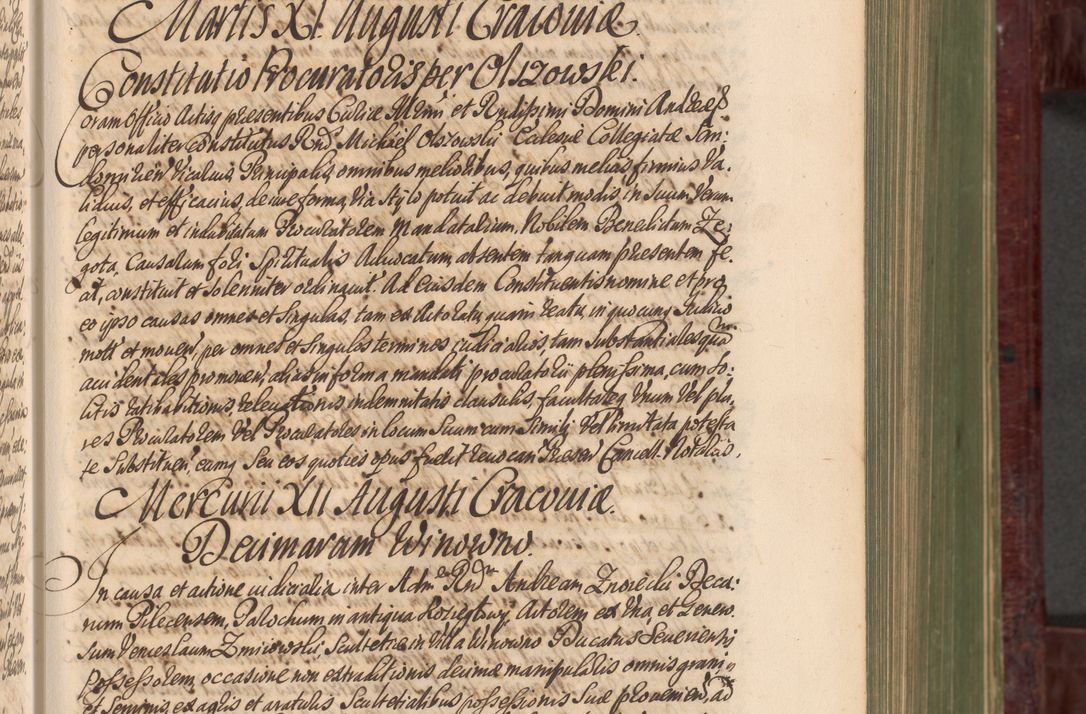 Martis XI Augusti Cracoviæ.
Constitutio Procuratoris per Olszowski.
Coram Officio Actisq præsentibus Curiæ Illmi et Rndissimi Domini Andreæ
personaliter Constitutus Rnd Michael Olszowski Ecclesiæ Collegiatæ San:
domirien Vicarius, Principalis, omnibus melioribus, quibus melius firmius va-
lidius, et efficacius, de iure forma, via stylo potuit ac debuit modis, in suum verum
legitimum et indubitatum Procuratorem Mandatarium, Nobilem Benedictum Ze:
gota, Causarum fori Spiritualis Advocatum absentem tanquam præsentem fe-
cit, constituit et solenniter ordinavit. Ad eiusdem Constituentis nomine et pro
eo ipso causas omnes et singulas, tam ex Actoratu, quam reatu, in quocunq Iudicio
mott et moven, per omnes et singulos terminos iudiciarios, tam substantiales quam
accidentales promoven, alias in forma mandati procuratorii plenissima, cum so:
litis ratihabitionis, relevationis indemnitatis clausulis, facultateq unum vel plu,
res Procuratorem vel Procuratores in locum suum cum simili vel limitata potesta
te substituen, eumq seu eos quoties opus fuerit revocan Præsen Cancell. Notariis,
Mercurii XII Augusti Cracoviæ.
Decimarum Winowno.
In causa et actione iudiciaria inter Adm Rnd Andream Znorecki Deca:
num Pilecensem, Parochum in antiqua Koziegłowy, Actorem ex una, et Genero
sum Venceslaum Zmiiowski, Scultetiæ in Villa Winowno Ducatus Severiensis
Possessorem, occasione non extraditionis decimæ manipularis omnis grani
et seminis, ex agris et araturis Scultetialibus possessionis suæ provenien, ad